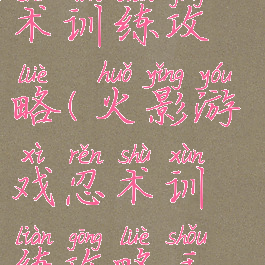 术训练攻
lüè huǒ yǐng yóu
略(火影游
xì rěn shù xùn
戏忍术训
liàn gōng lüè shǒu
练攻略手